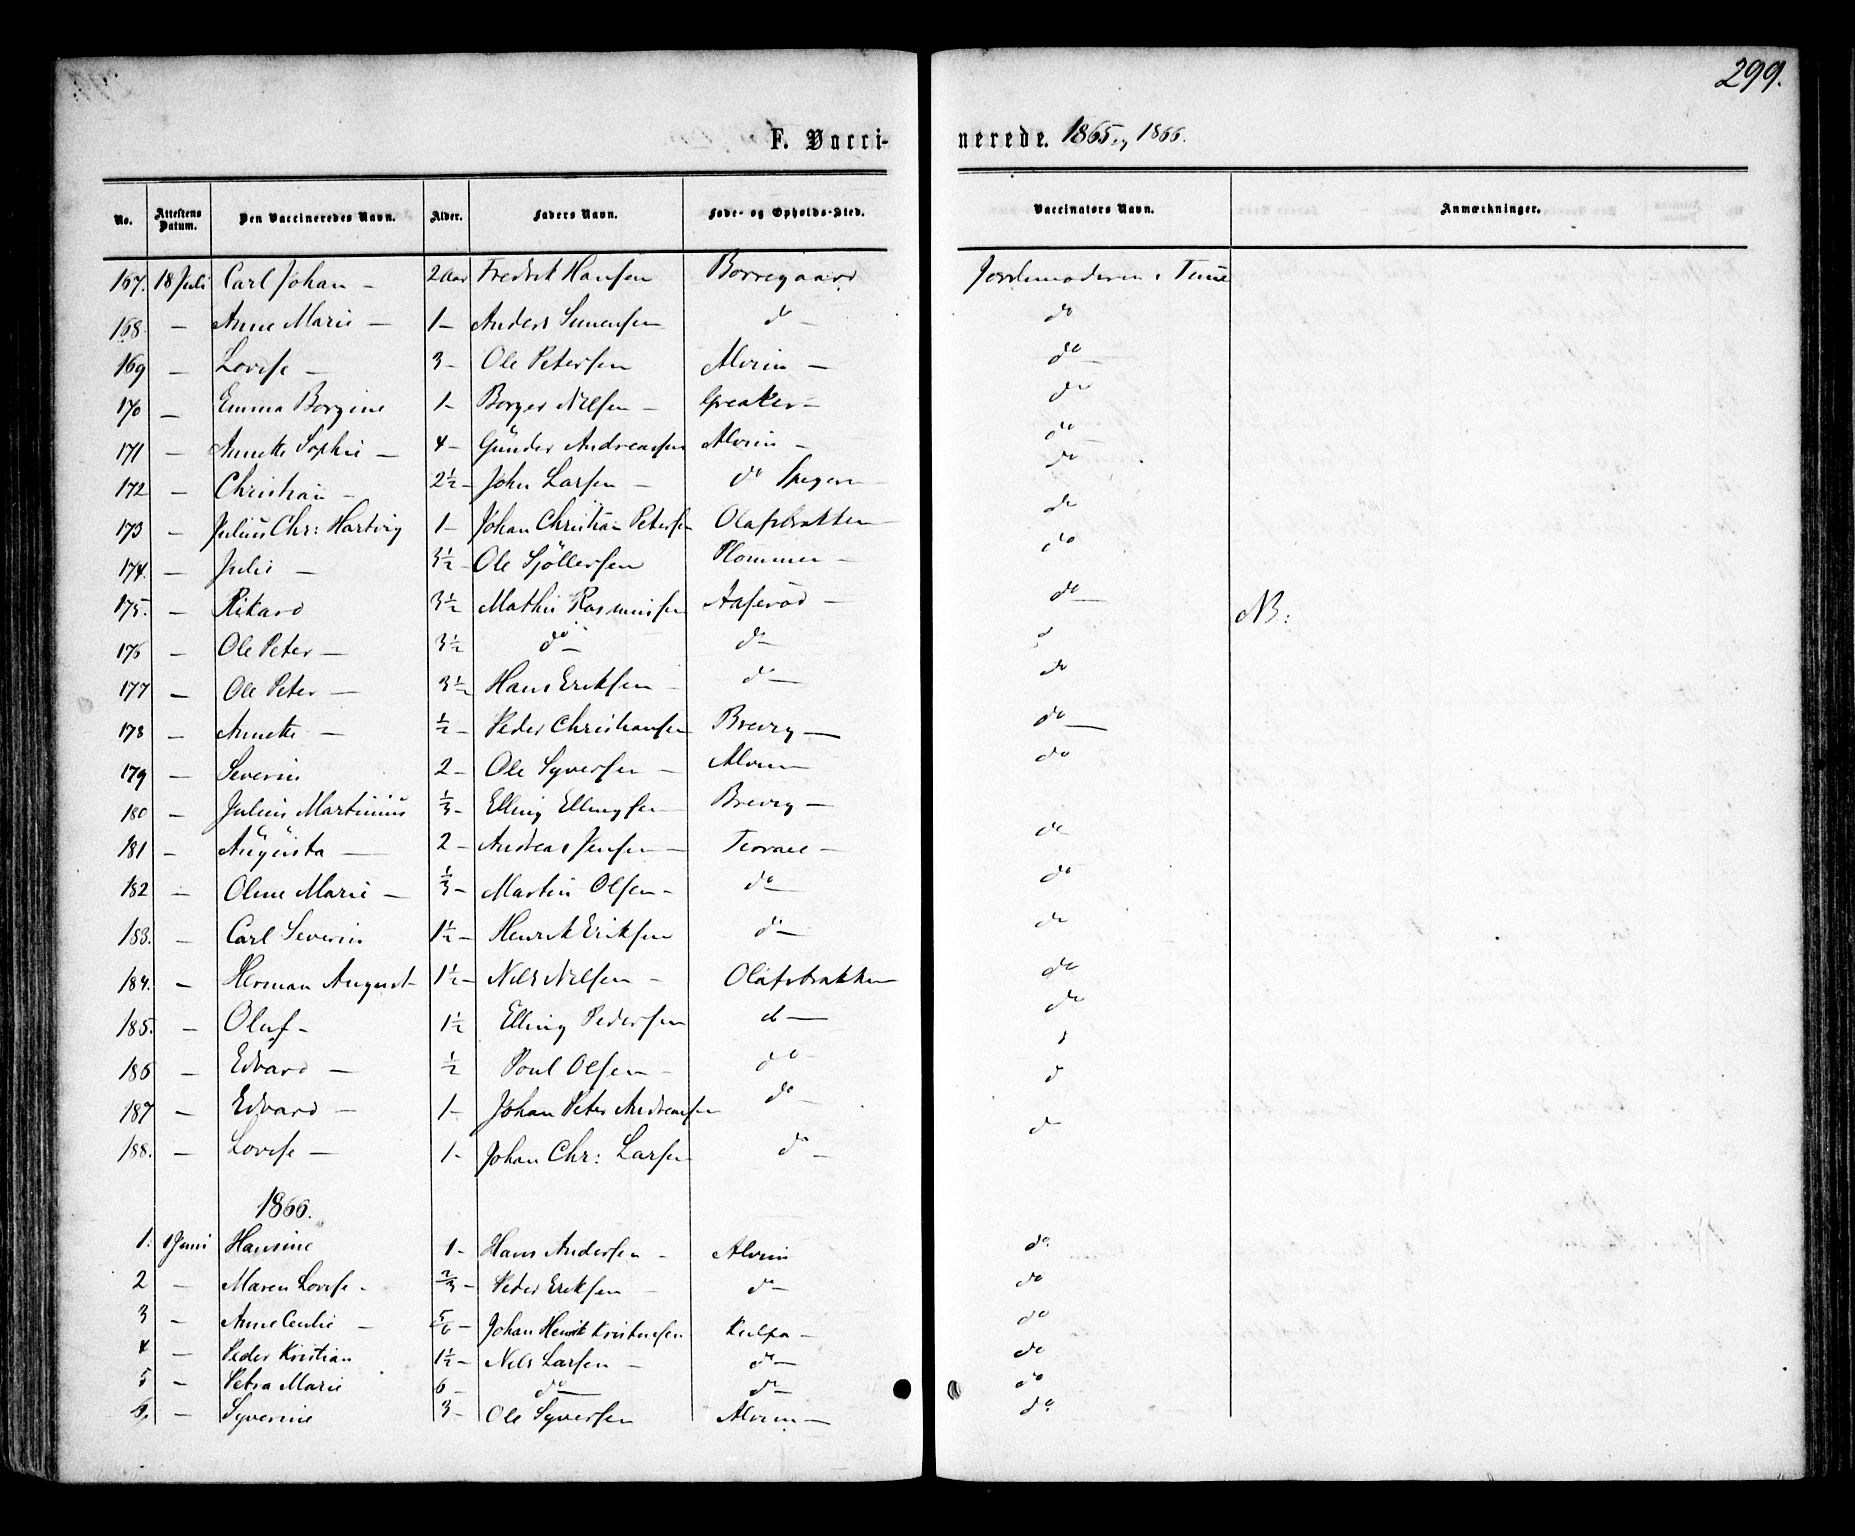 299.
F. Vacci- nerede. 1865 og 1866.
No. Attestens Datum. Den Vaccineredes Navn. Alder. Faders Navn. Føde- og Opholds-Sted. Vaccinatørs Navn. Anmærkninger.
167. 18 Juli Carl Johan - 2 Aar Fredrik Hansen Borregaard Jordemoderen i Tune
168. — Anne Marie — 1 - Anders Simensen do - do
169 — Lovise — 3 - Ole Petersen Alvim — do —
170 — Emma Borgine 1 - Borger Nilsen - Greaker - do
171 — Annette Sophie — 4 - Günder Andreassen Alvim - do
172 — Christian - 2½ - John Larsen - do Spigeren do
173 — Julius Chr: Hartvig 1 - Johan Christian Petersen Olafsbakken do
174. — Julie — 3½ - Ole Sjøllersen Plommen - do
175. — Rikard 3½ Mathis Rasmussen Aaserød - do — NB:
176 — Ole Peter — 3½ do - do - d
177 — Ole Peter — 3½ Hans Eriksen - do — do
178 — Annette — ½ - Peder Christiansen Brevig — do —
179 — Severin 2 - Ole Syversen - Alvim do
180 — Julius Martinius ⅓ - Elling Ellingsen Brevig -
181 — Augusta — 2 - Andreas Jensen — Torvaee - do
182 — Oline Marie — ⅓ - Martin Olsen - do — do
183. — Carl Severin 1½ - Henrik Eriksen do — do
184. — Herman August - 1½ - Nils Nilsen - Olafsbakken do
185. — Oluf - 1½ Elling Pedersen do — do
186 — Edvard — ½ Poul Olsen - do - d
187 — Edvard — 1 - Johan Peter Andreasen do - d
188. — Lovise — 1 - Johan Chr: Larsen do - do
1866.
1. 1 Juni Hansine 1 - Hans Andersen - Alvim do
2 — Maren Lovise - ⅔ - Peder Eriksen - do - do
3 — Anne Cecilie - 5/6 - Johan Henrik Kristensen Kulpa - do
4 — Peder Kristian 1½ - Nils Larsen - do - do
5 - Petra Marie 6 - do — do - do
6. — Syverine 3 - Ole Syversen Alvim — do